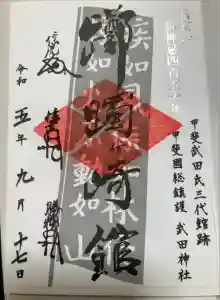 甲斐武田氏三代館跡
甲斐國総鎮護 武田神社
躑躅ヶ崎館
疾如風徐如林
侵掠如火不動如山
信虎
勝頼
令和五年九月十七日